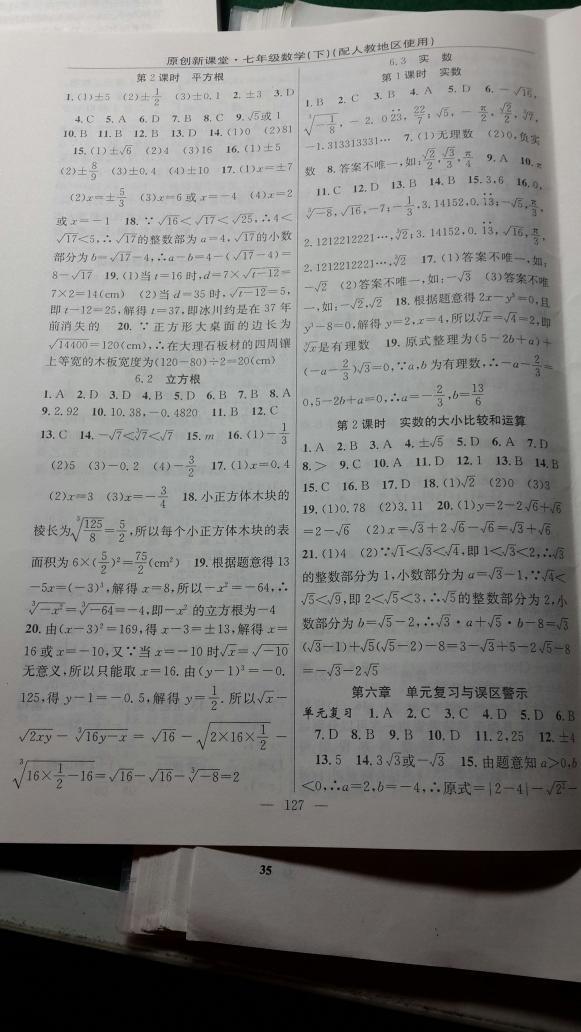 原创新课堂·七年级数学(下)(配人教地区使用)
第2课时 平方根
1.(1)±5 (2)±1/2 (3)±0.1 2.±3 3.D
4.C 5.A 6.D 7.B 8.C 9.√5或1
10.B 11.B 12.B 13.D 14.(1)0 (2)81
15.(1)±√6 (2)4 (3)16 16.(1)±5
(2)±8/9 (3)±0.4 (4)±10 17.(1)x=±7
(2)x=±5/3 (3)x=6或x=-4 (4)x=2
或x=-1 18.∵√16<√17<√25,∴4<
√17<5,∴√17的整数部为a=4,√17的小数
部分为b=√17-4,∴a-b=4-(√17-4)=
8-√17 19.(1)当t=16时,d=7×√(t-12)=
7×2=14(cm) (2)当d=35时,√(t-12)=5,
即t-12=25,解得t=37,即冰川约是在37年
前消失的 20.∵正方形大桌面的边长为
√14400=120(cm),∴在大理石板材的四周镶
上等宽的木板宽度为(120-80)÷2=20(cm)
6.2 立方根
1.A 2.D 3.D 4.B 5.D 6.B 7.B 8.A
9.2.92 10.10.38,-0.4820 11.B 12.C
13.C 14.-√7<∛7<√7 15.m 16.(1)-1/3
(2)5 (3)-0.2 (4)-3/2 17.(1)x=0.4
(2)x=3 (3)x=-3/4 18.小正方体木块的
棱长为∛(125/8)=5/2,所以每个小正方体木块的表
面积为6×(5/2)²=75/2(cm²) 19.根据题意得13
-5x=(-3)³,解得x=8,所以-x²=-64,∴
∛(-x²)=∛(-64)=-4,即-x²的立方根为-4
20.由(x-3)²=169,得x-3=±13,解得x=
16或x=-10,又∵当x=-10时√x=√(-10)
无意义,所以只能取x=16.由(y-1)³=-0.
125,得y-1=-0.5,解得y=1/2.所以√x-
√(2xy)-∛(16y-x)=√16-√(2×16×1/2)-
∛(16×1/2-16)=√16-√16-∛(-8)=2
6.3 实数
第1课时 实数
1.B 2.C 3.B 4.A 5.D 6.-√16,
∛(-1/8),-2.023,22/7;√5,-π/2,√2/2,∛7,
-1.313313331… 7.(1)无理数 (2)0,负实
数 8.答案不唯一,如:√2/2,√3/3,π/4 9.A 10.π
11.C 12.D 13.B 14.B 15.3,6 16.0,
∛(-8),√16,-7;-1/3,3.14152,0.13;-√5,π/3,
2.1212212221…,∛2;3.14152,0.13,√16,π/3,
2.1212212221…,∛2 17.(1)答案不唯一,如:
-√2 (2)答案不唯一,如:-√3 (3)答案不唯
一,如:-√2,√2 18.根据题意得2x-y³=0,且
y³-8=0,解得y=2,x=4,所以√x=√4=2,即
√x是有理数 19.原式整理为(5-2b+a)+
(-a-2/3)√3=0,∵a,b为有理数,∴-a-2/3=
0,5-2b+a=0,∴a=-2/3,b=13/6
第2课时 实数的大小比较和运算
1.A 2.B 3.A 4.±√5 5.D 6.A 7.D
8.> 9.C 10.A 11.D 12.1 13.B 14.B
15.C 16.B 17.D 18.(1)√2 (2)0 (3)3
19.(1)0.78 (2)3.11 20.(1)y=2-2√6+√6
=2-√6 (2)x=√3+2√6-√6=√3+√6
21.(1)4 (2)∵√1<√3<√4,即1<√3<2,∴√3
的整数部分为1,小数部分为a=√3-1,∵√4<
√5<√9,即2<√5<3,∴√5的整数部分为2,小
数部分为b=√5-2,∴√3·a+√5·b-8=√3
(√3-1)+√5(√5-2)-8=3-√3+5-2√5-8
=-√3-2√5
第六章 单元复习与误区警示
单元复习 1.A 2.C 3.C 4.D 5.D 6.B
7.D 8.B 9.B 10.D 11.2,25 12.±4
13.5 14.3√3或-√3 15.由题意知a>0,b
<0,∴a=2,b=-4,∴原式=|2-4|-√2²-
— 127 —
35